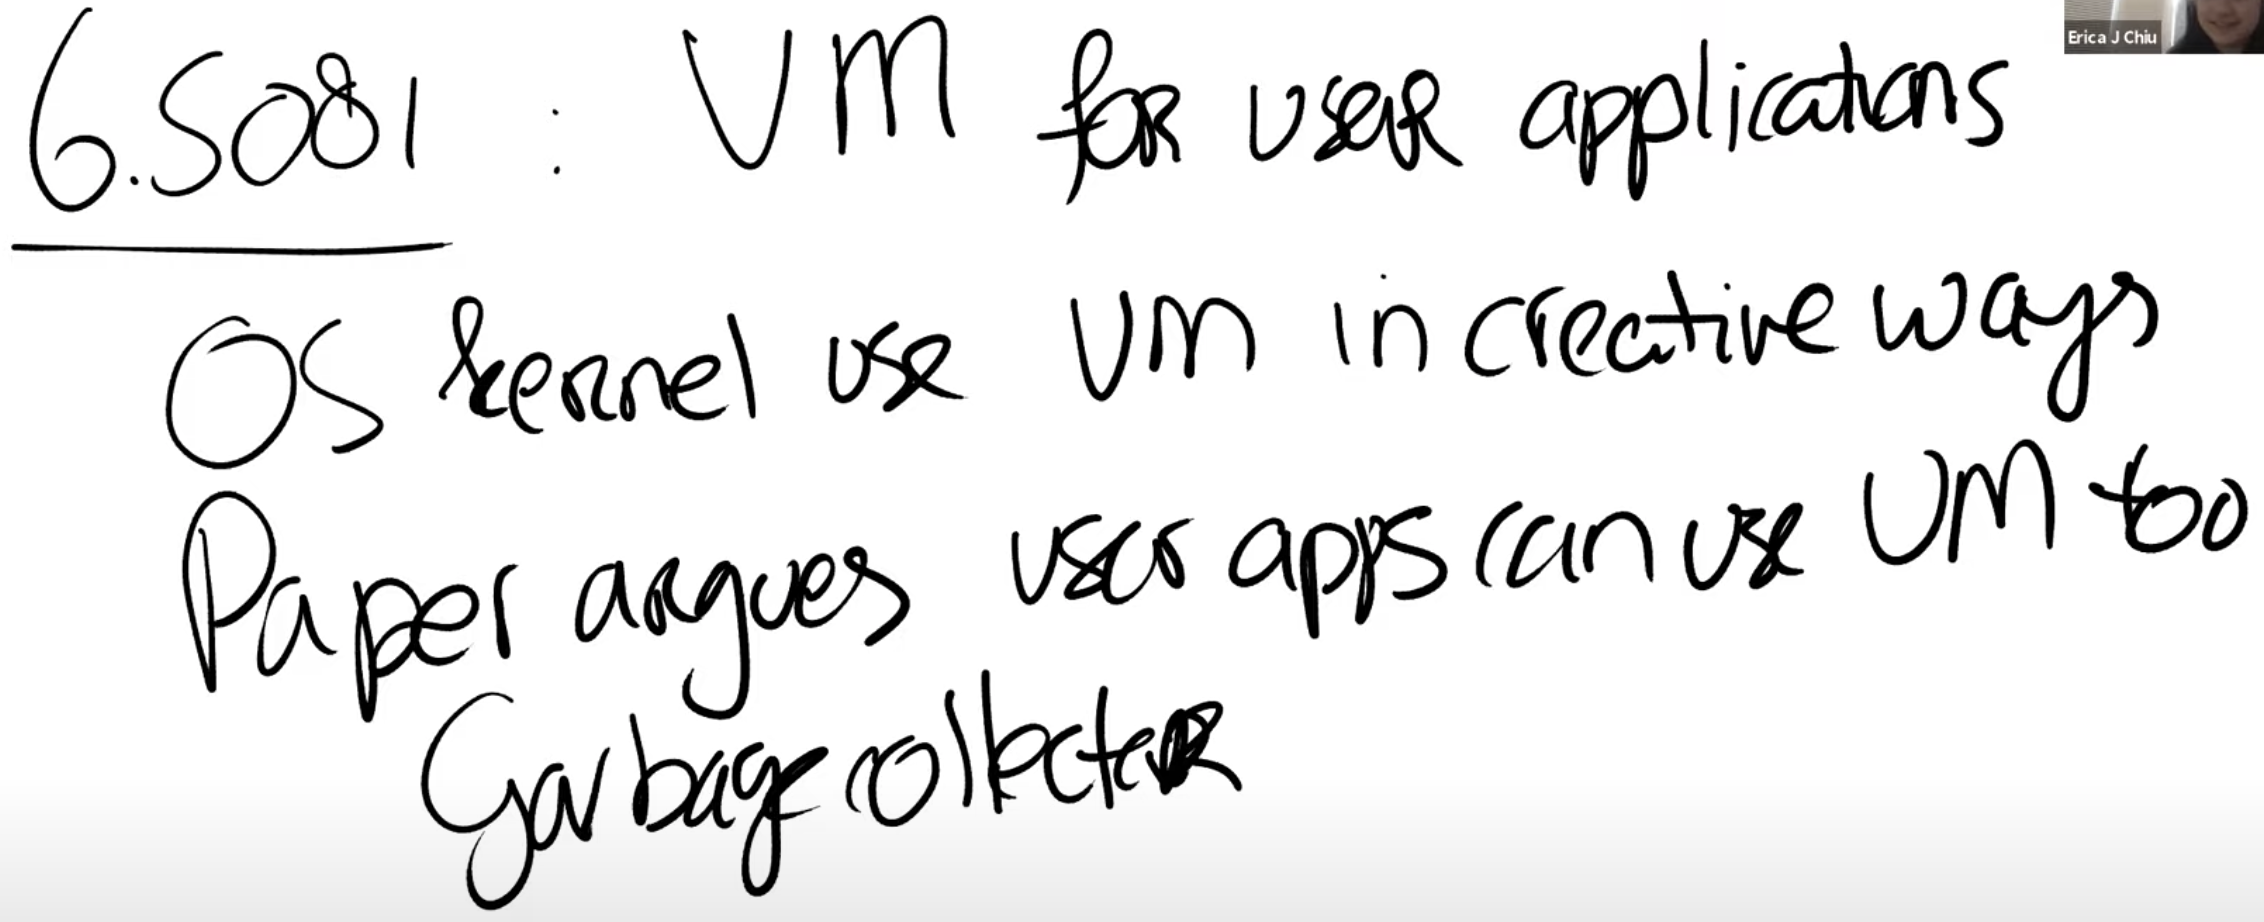 Erica J Chiu
6.S081 : VM for user applications
OS kernel use VM in creative ways
Paper argues user apps can use VM too
Garbage collector